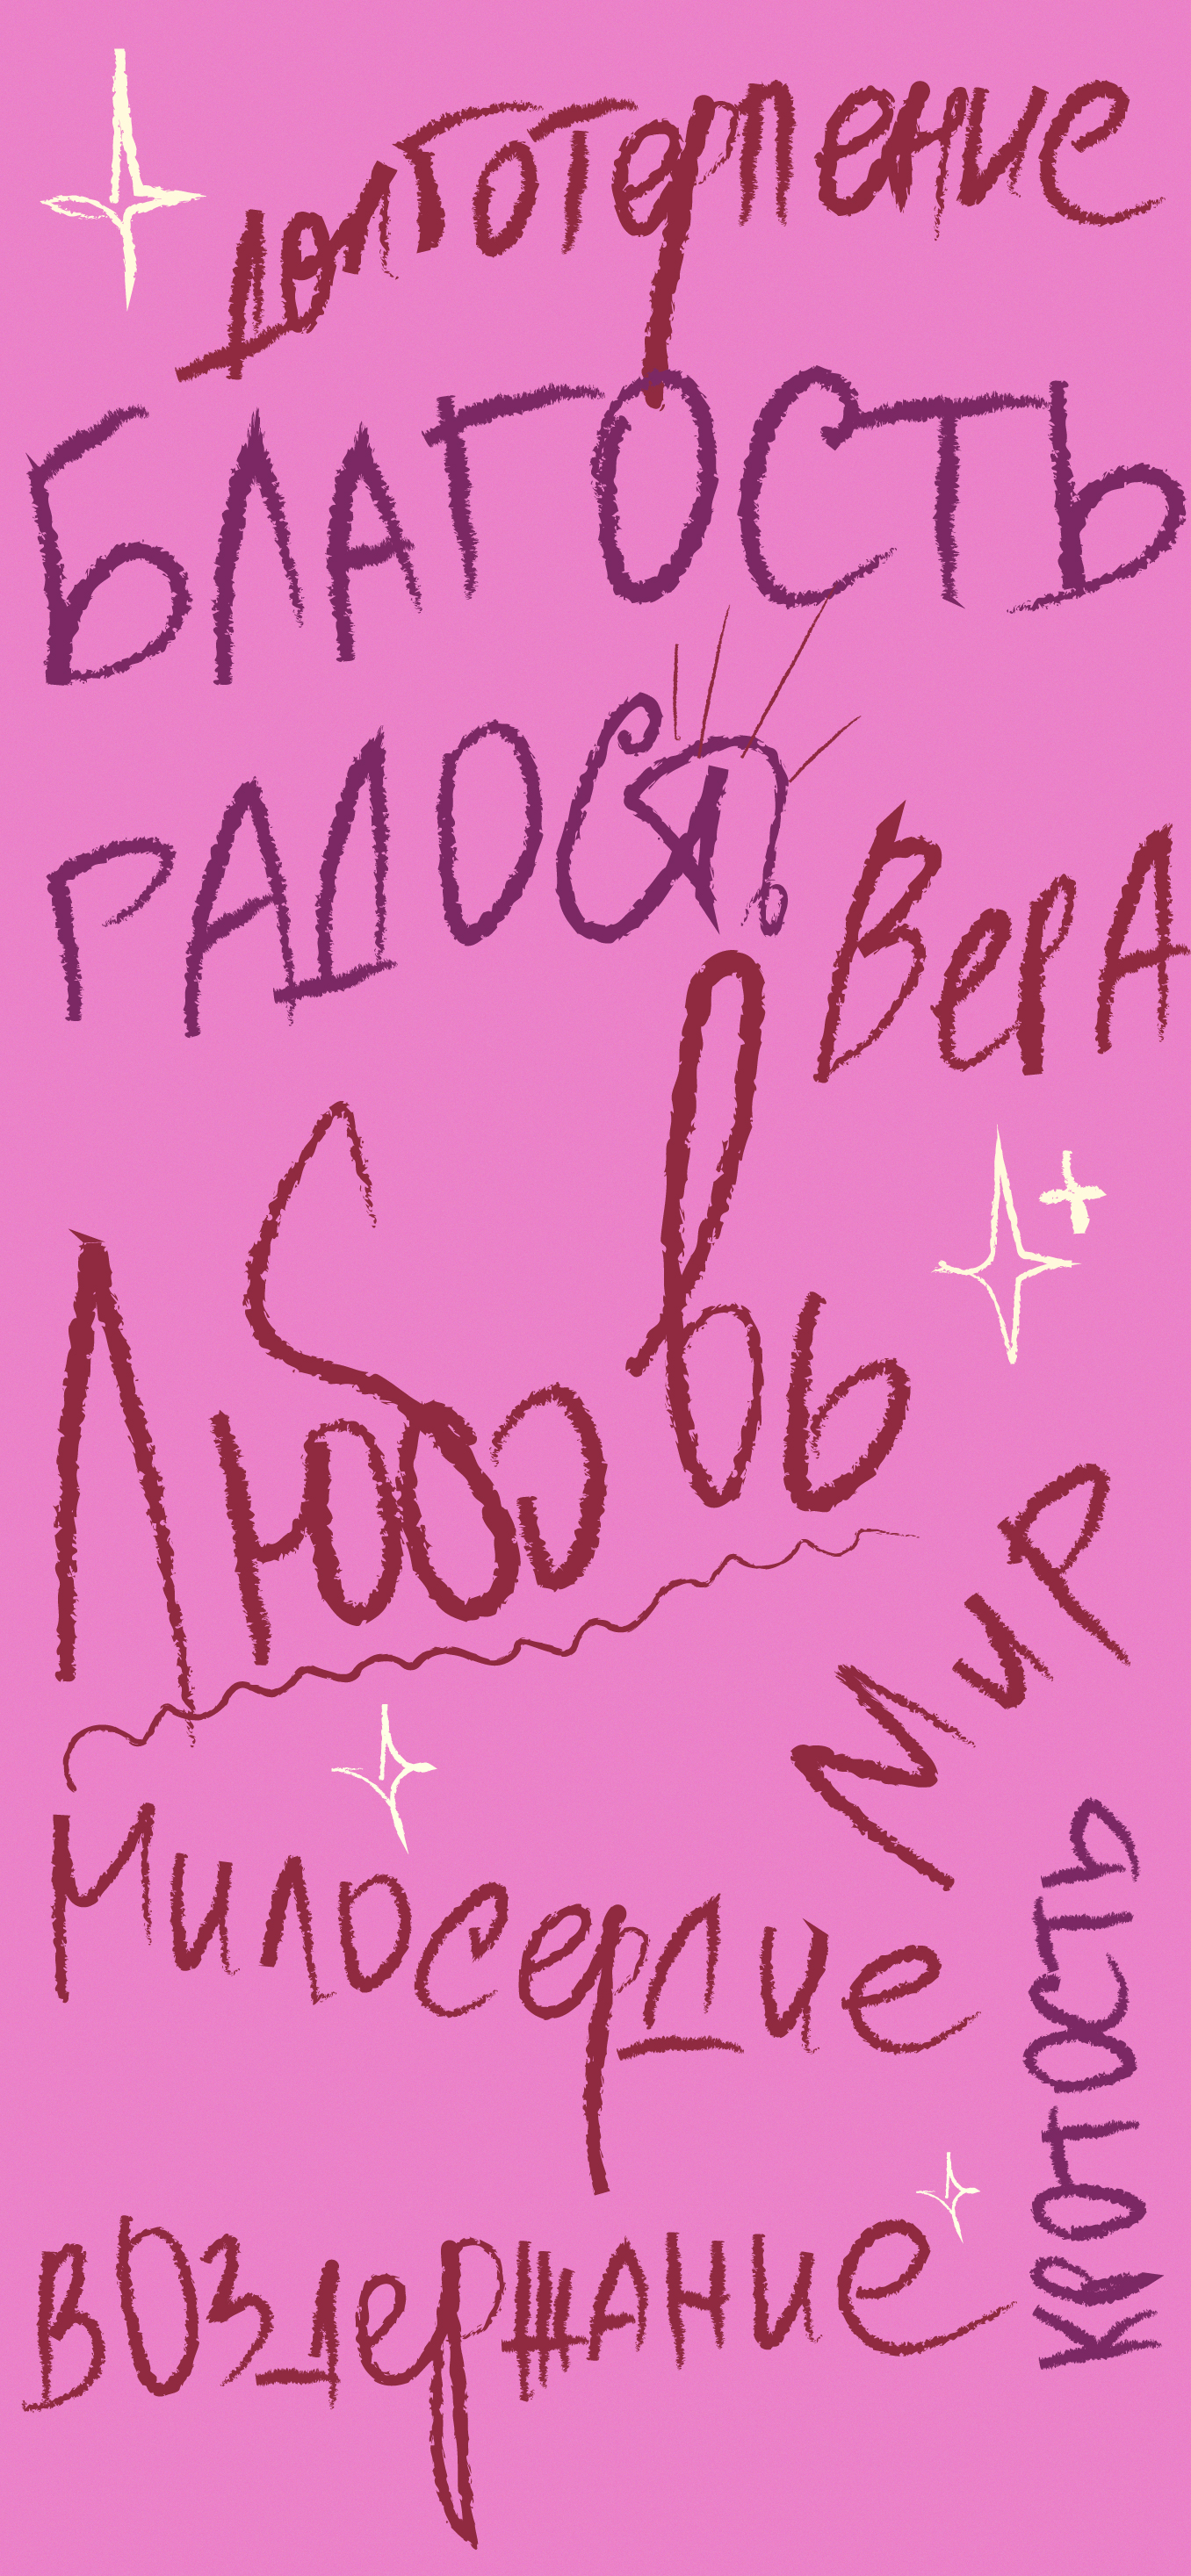 долготерпение
БЛАГОСТЬ
РАДОСТЬ
ВерА
Любовь
Мир
Милосердие
КРОТОСТЬ
ВОЗдержАНие